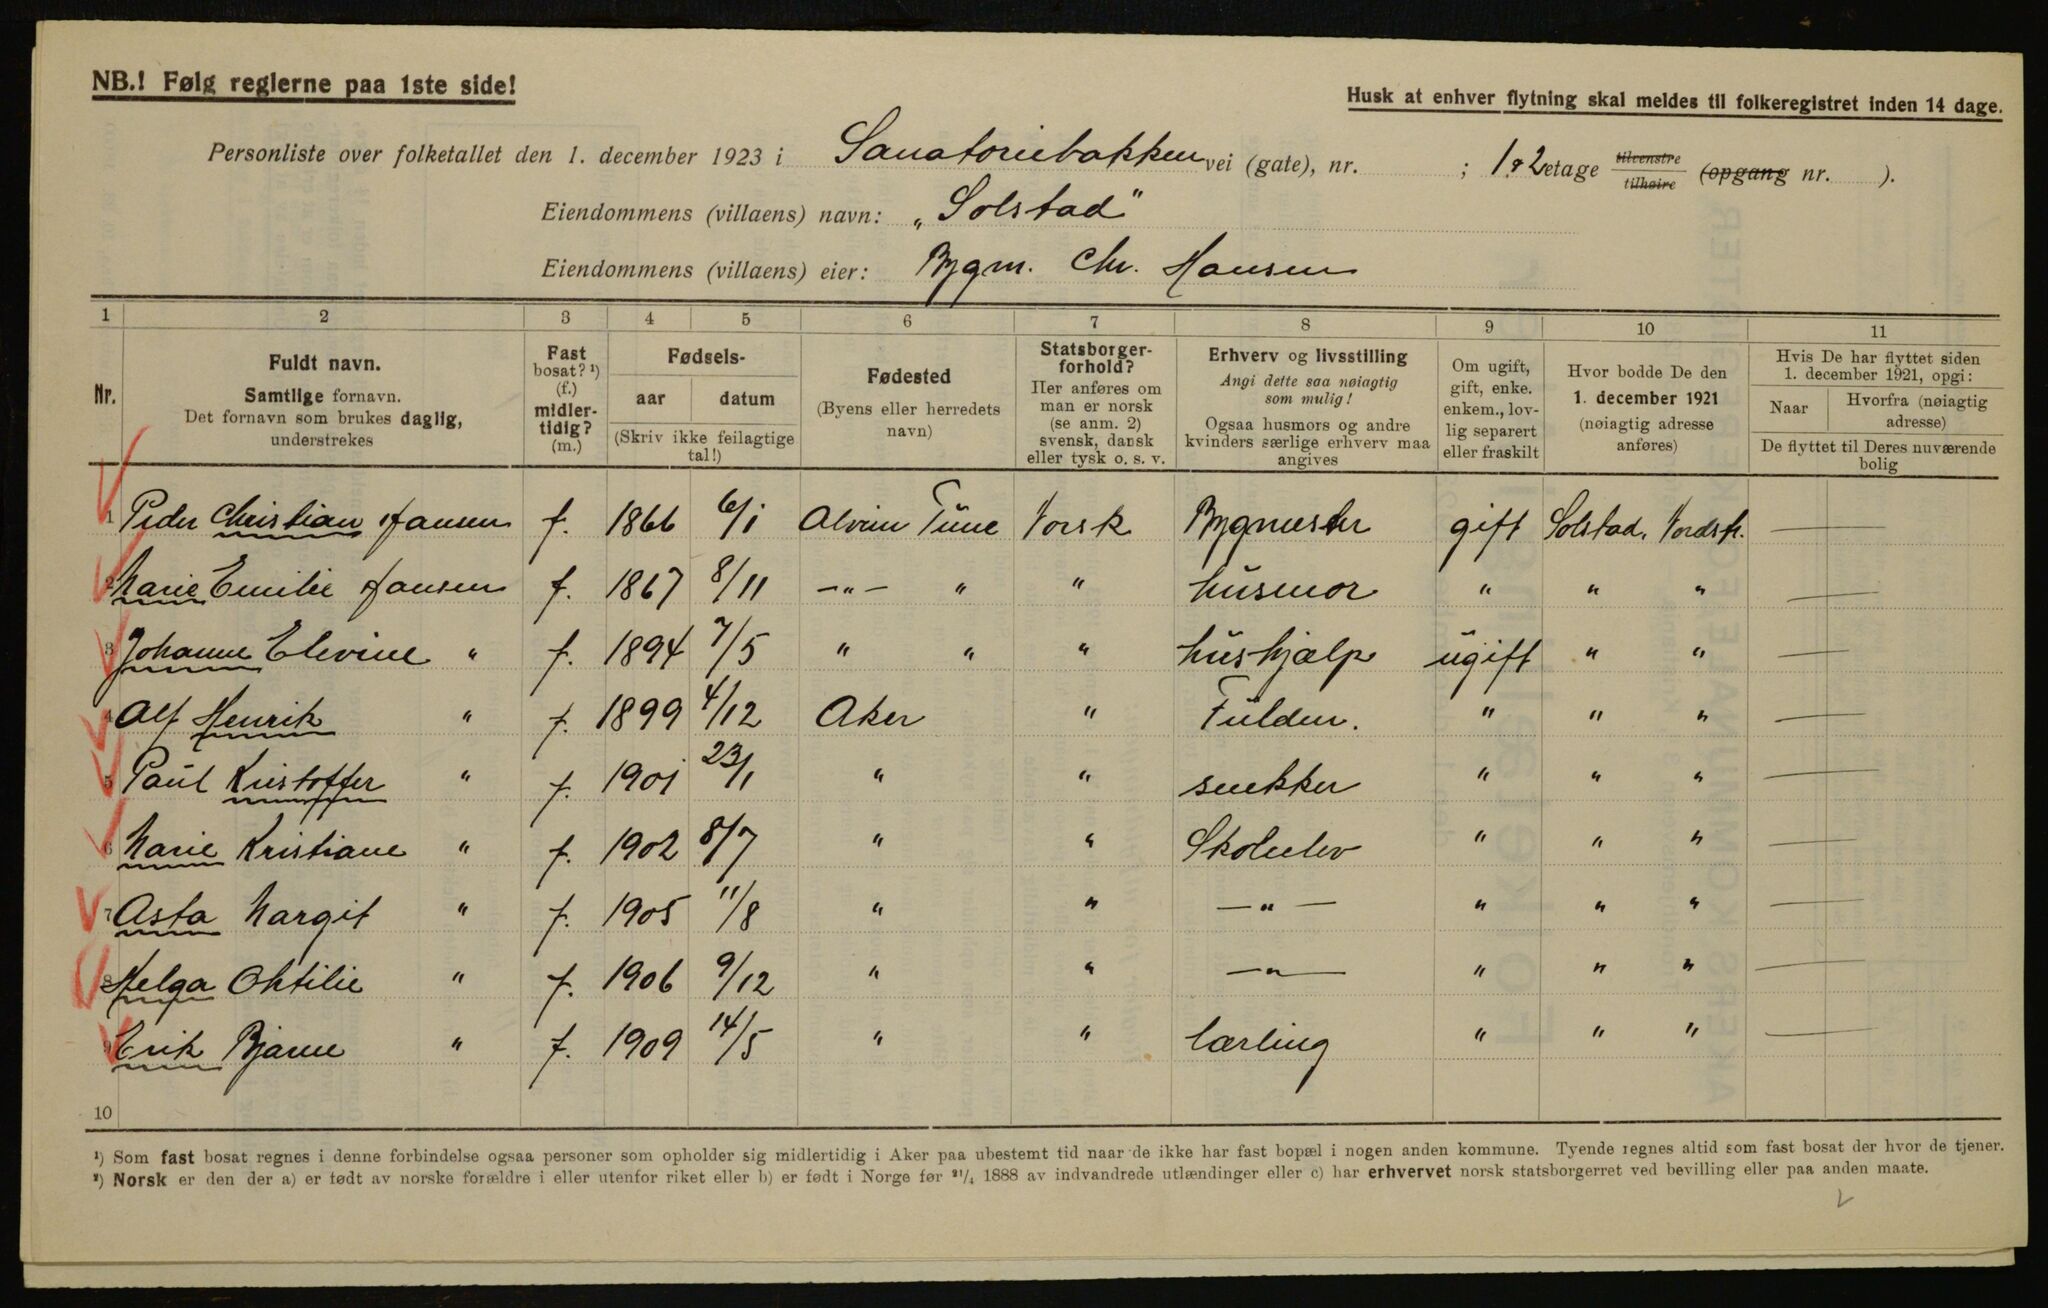 NB.! Følg reglerne paa 1ste side!
Husk at enhver flytning skal meldes til folkeregistret inden 14 dage.
Personliste over folketallet den 1. december 1923 i Sanatoriebakken vei (gate), nr. ; 1 & 2 etage tilvenstre tilhøire (opgang nr. ).
Eiendommens (villaens) navn: „Solstad"
Eiendommens (villaens) eier: Bygm. Chr. Hansen
1 2 3 4 5 6 7 8 9 10 11
Nr.
Fuldt navn.
Samtlige fornavn.
Det fornavn som brukes daglig,
understrekes
Fast
bosat? ¹)
(f.)
midler-
tidig?
(m.)
Fødsels-
aar datum
(Skriv ikke feilagtige
tal!)
Fødested
(Byens eller herredets
navn)
Statsborger-
forhold?
Her anføres om
man er norsk
(se anm. 2)
svensk, dansk
eller tysk o. s. v.
Erhverv og livsstilling
Angi dette saa nøiagtig
som mulig!
Ogsaa husmors og andre
kvinders særlige erhverv maa
angives
Om ugift,
gift, enke.
enkem., lov-
lig separert
eller fraskilt
Hvor bodde De den
1. december 1921
(nøiagtig adresse
anføres)
Hvis De har flyttet siden
1. december 1921, opgi:
Naar
Hvorfra (nøiagtig
adresse)
De flyttet til Deres nuværende
bolig
1 Peder Christian Hansen f. 1866 6/1 Alvim Tune Norsk Bygmester gift Solstad, Nordstr. —
2 Marie Emilie Hansen f. 1867 8/11 —"— " " husmor " " " —
3 Johanne Elevine " f. 1894 7/5 " " " hushjælp ugift " " —
4 Alf Henrik " f. 1899 4/12 Aker " Fuldm. " " " —
5 Paul Kristoffer " f. 1901 23/1 " " snekker " " " —
6 Marie Kristiane " f. 1902 8/7 " " Skoleelev " " " —
7 Asta Margit " f. 1905 11/8 " " —"— " " " —
8 Helga Ohtilie " f. 1906 9/12 " " —"— " " " —
9 Erik Bjarne " f. 1909 14/5 " " lærling " " " —
10
¹) Som fast bosat regnes i denne forbindelse ogsaa personer som opholder sig midlertidig i Aker paa ubestemt tid naar de ikke har fast bopæl i nogen anden kommune. Tyende regnes altid som fast bosat der hvor de tjener.
²) Norsk er den der a) er født av norske forældre i eller utenfor riket eller b) er født i Norge før ²¹/₄ 1888 av indvandrede utlændinger eller c) har erhvervet norsk statsborgerret ved bevilling eller paa anden maate.